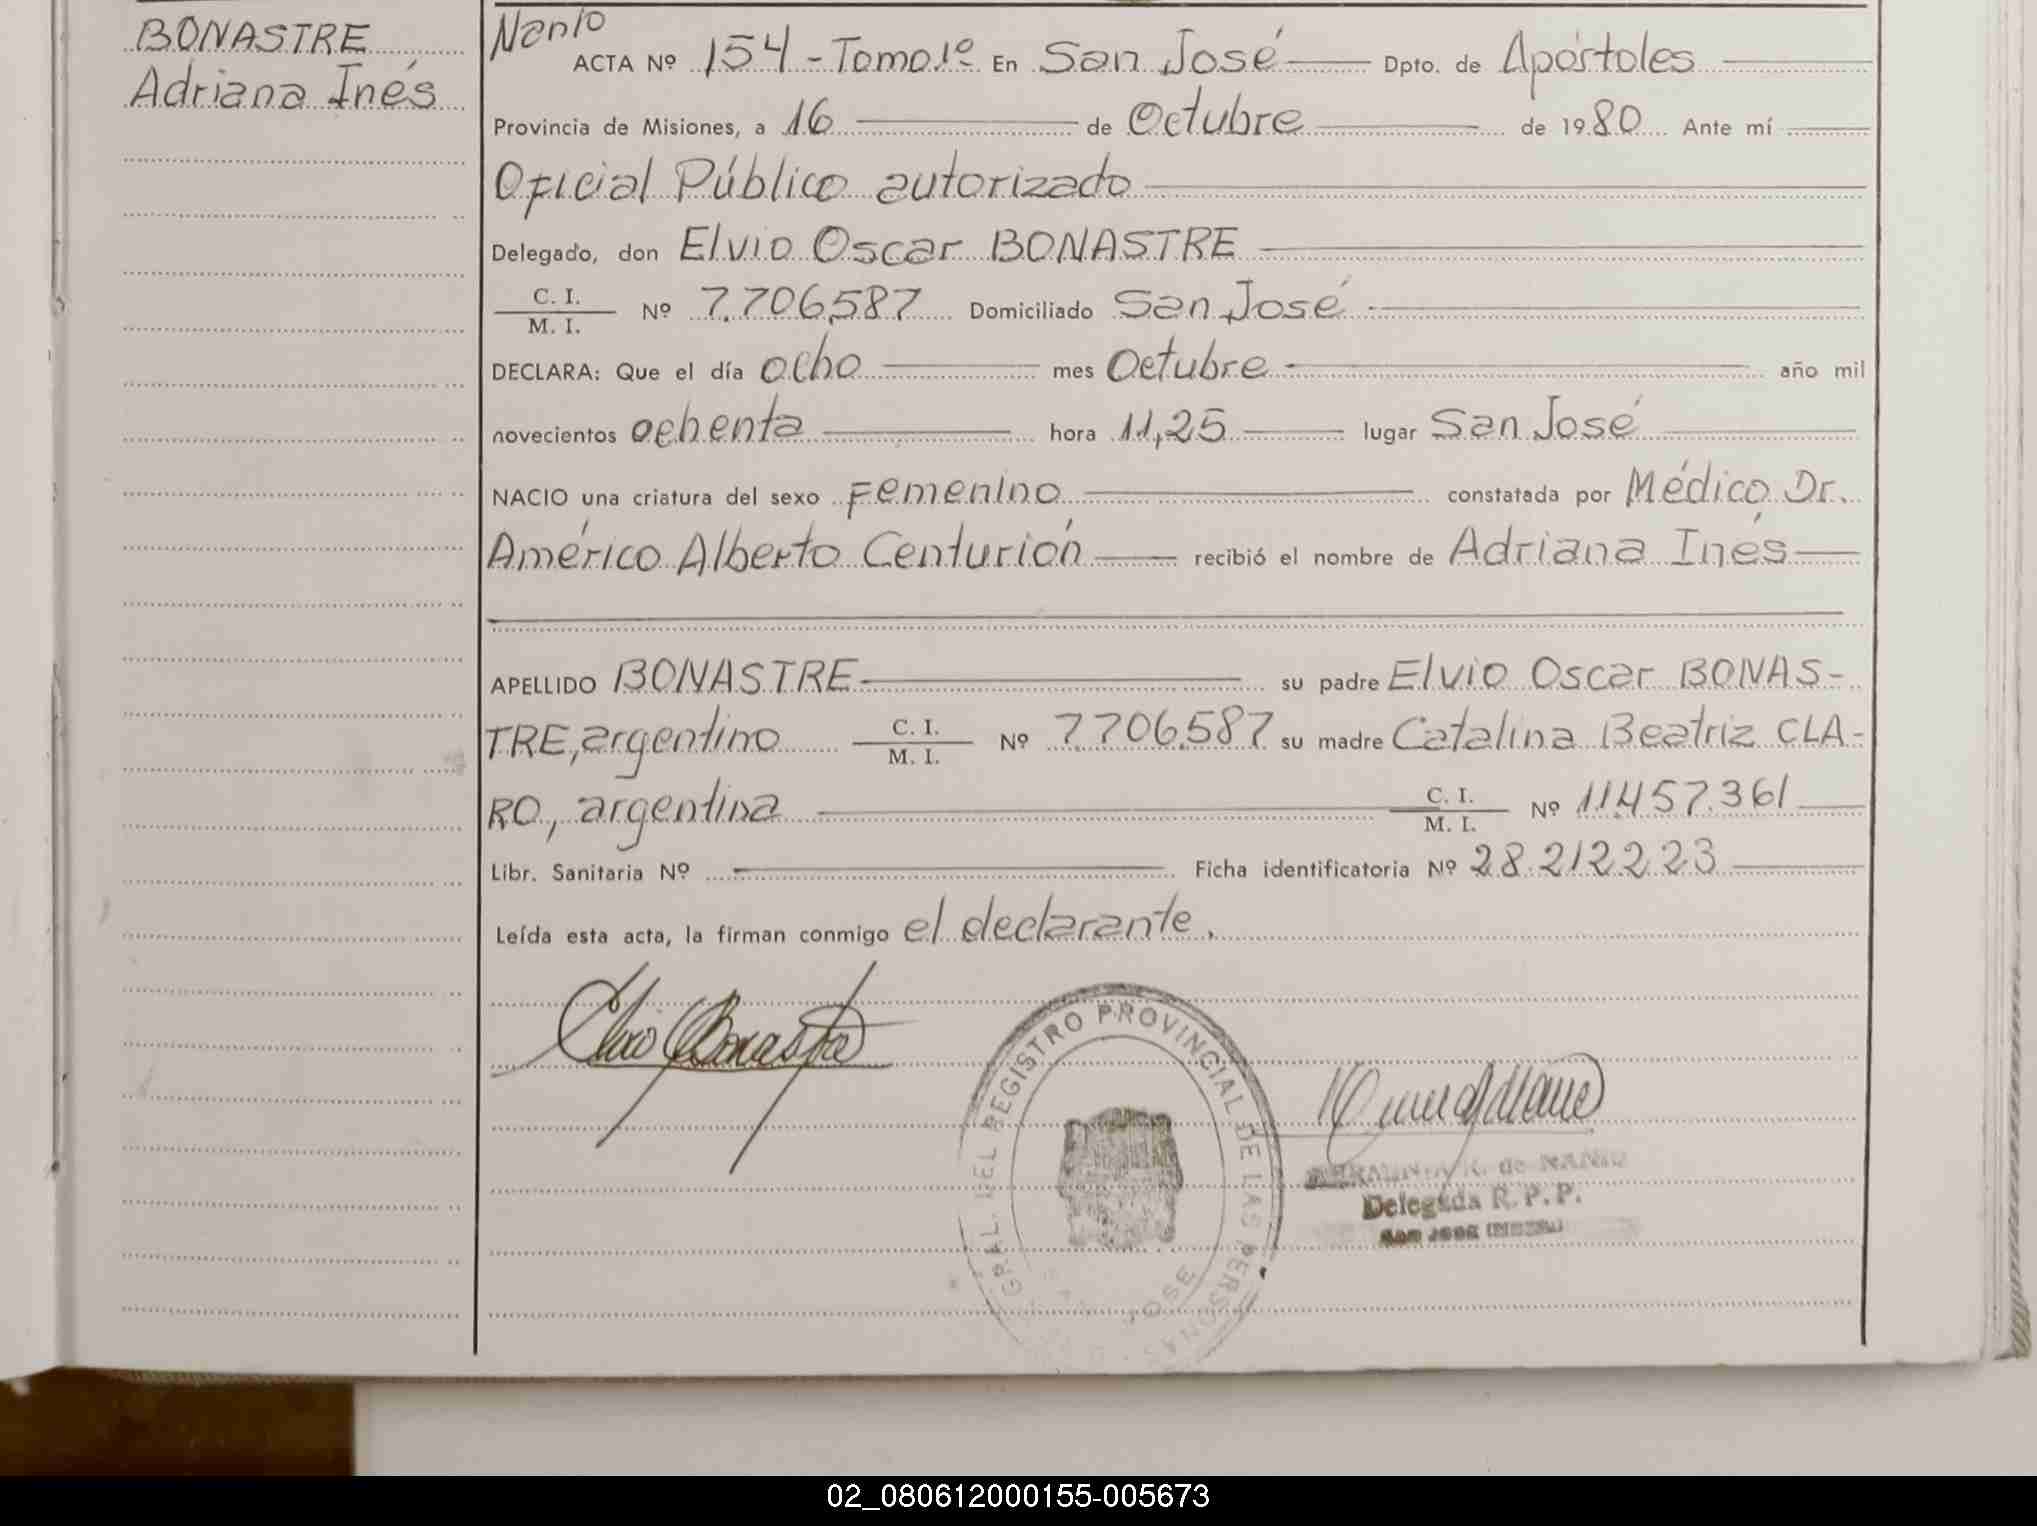 BONASTRE
Adriana Inés
ACTA Nº 154 - Tomo 1º En San José Dpto. de Apóstoles
Provincia de Misiones, a 16 de Octubre de 1980 Ante mí
Oficial Público autorizado
Delegado, don Elvio Oscar BONASTRE
C. I.
M. I. Nº 7.706.587 Domiciliado San José
DECLARA: Que el día ocho mes Octubre año mil
novecientos ochenta hora 11,25 lugar San José
NACIO una criatura del sexo Femenino constatada por Médico Dr.
Américo Alberto Centurión recibió el nombre de Adriana Inés
APELLIDO BONASTRE su padre Elvio Oscar BONAS-
TRE, argentino C. I.
M. I. Nº 7.706.587 su madre Catalina Beatriz CLA-
RO, argentina C. I.
M. I. Nº 11.457.361
Libr. Sanitaria Nº Ficha identificatoria Nº 28.212.223
Leída esta acta, la firman conmigo el declarante.
Elvio Bonastre
GRAL. DEL REGISTRO PROVINCIAL DE LAS PERSONAS
JOSE
Delegada R. P. P.
02_080612000155-005673